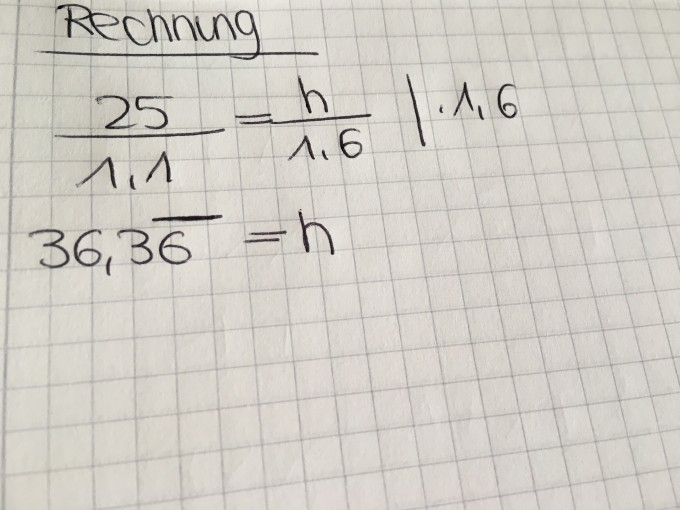 Rechnung
25/1,1 = h/1,6 | · 1,6
36,3̅6̅ = h